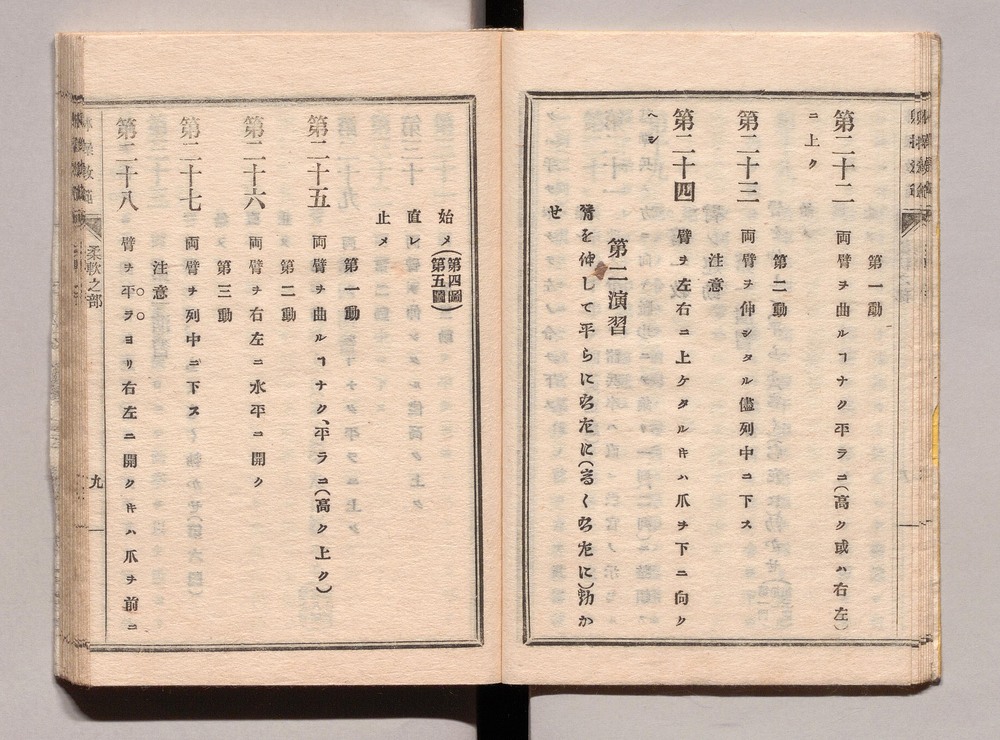 第一動
第二十二 両臂ヲ曲ルヿナク平ラニ(高ク或ハ右左)
ニ上ク
第二動
第二十三 両臂ヲ伸シタル儘列中ニ下ス
注意
第二十四 臂ヲ左右ニ上ケタルキハ爪ヲ下ニ向ク
ヘシ
第二演習
臂を伸して平らに右左に(高く右左に)動か
せ
始メ(第四圖 第五圖)
直レ
止メ
第一動
第二十五 両臂ヲ曲ルヿナク、平ラニ(高ク上ク)
第二動
第二十六 両臂ヲ右左ニ水平ニ開ク
第三動
第二十七 両臂ヲ列中ニ下ス
注意○○
第二十八 臂ヲ平ラヨリ右左ニ開クキハ爪ヲ前ニ
柔軟之部
九